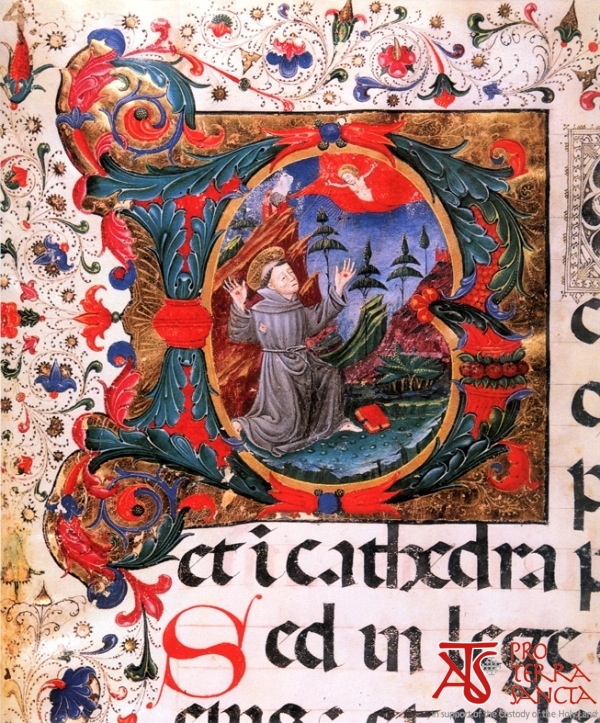 B
et i cathedra p
Sed in lege
ATS
PRO
TERRA
SANCTA
In support of the Custody of the Holy Land